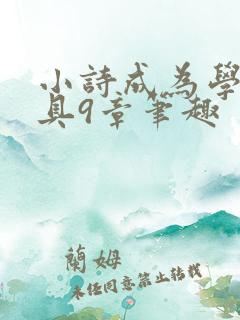 小詩成為學
具9章筆趣
蘭姆
未經同意禁止轉載